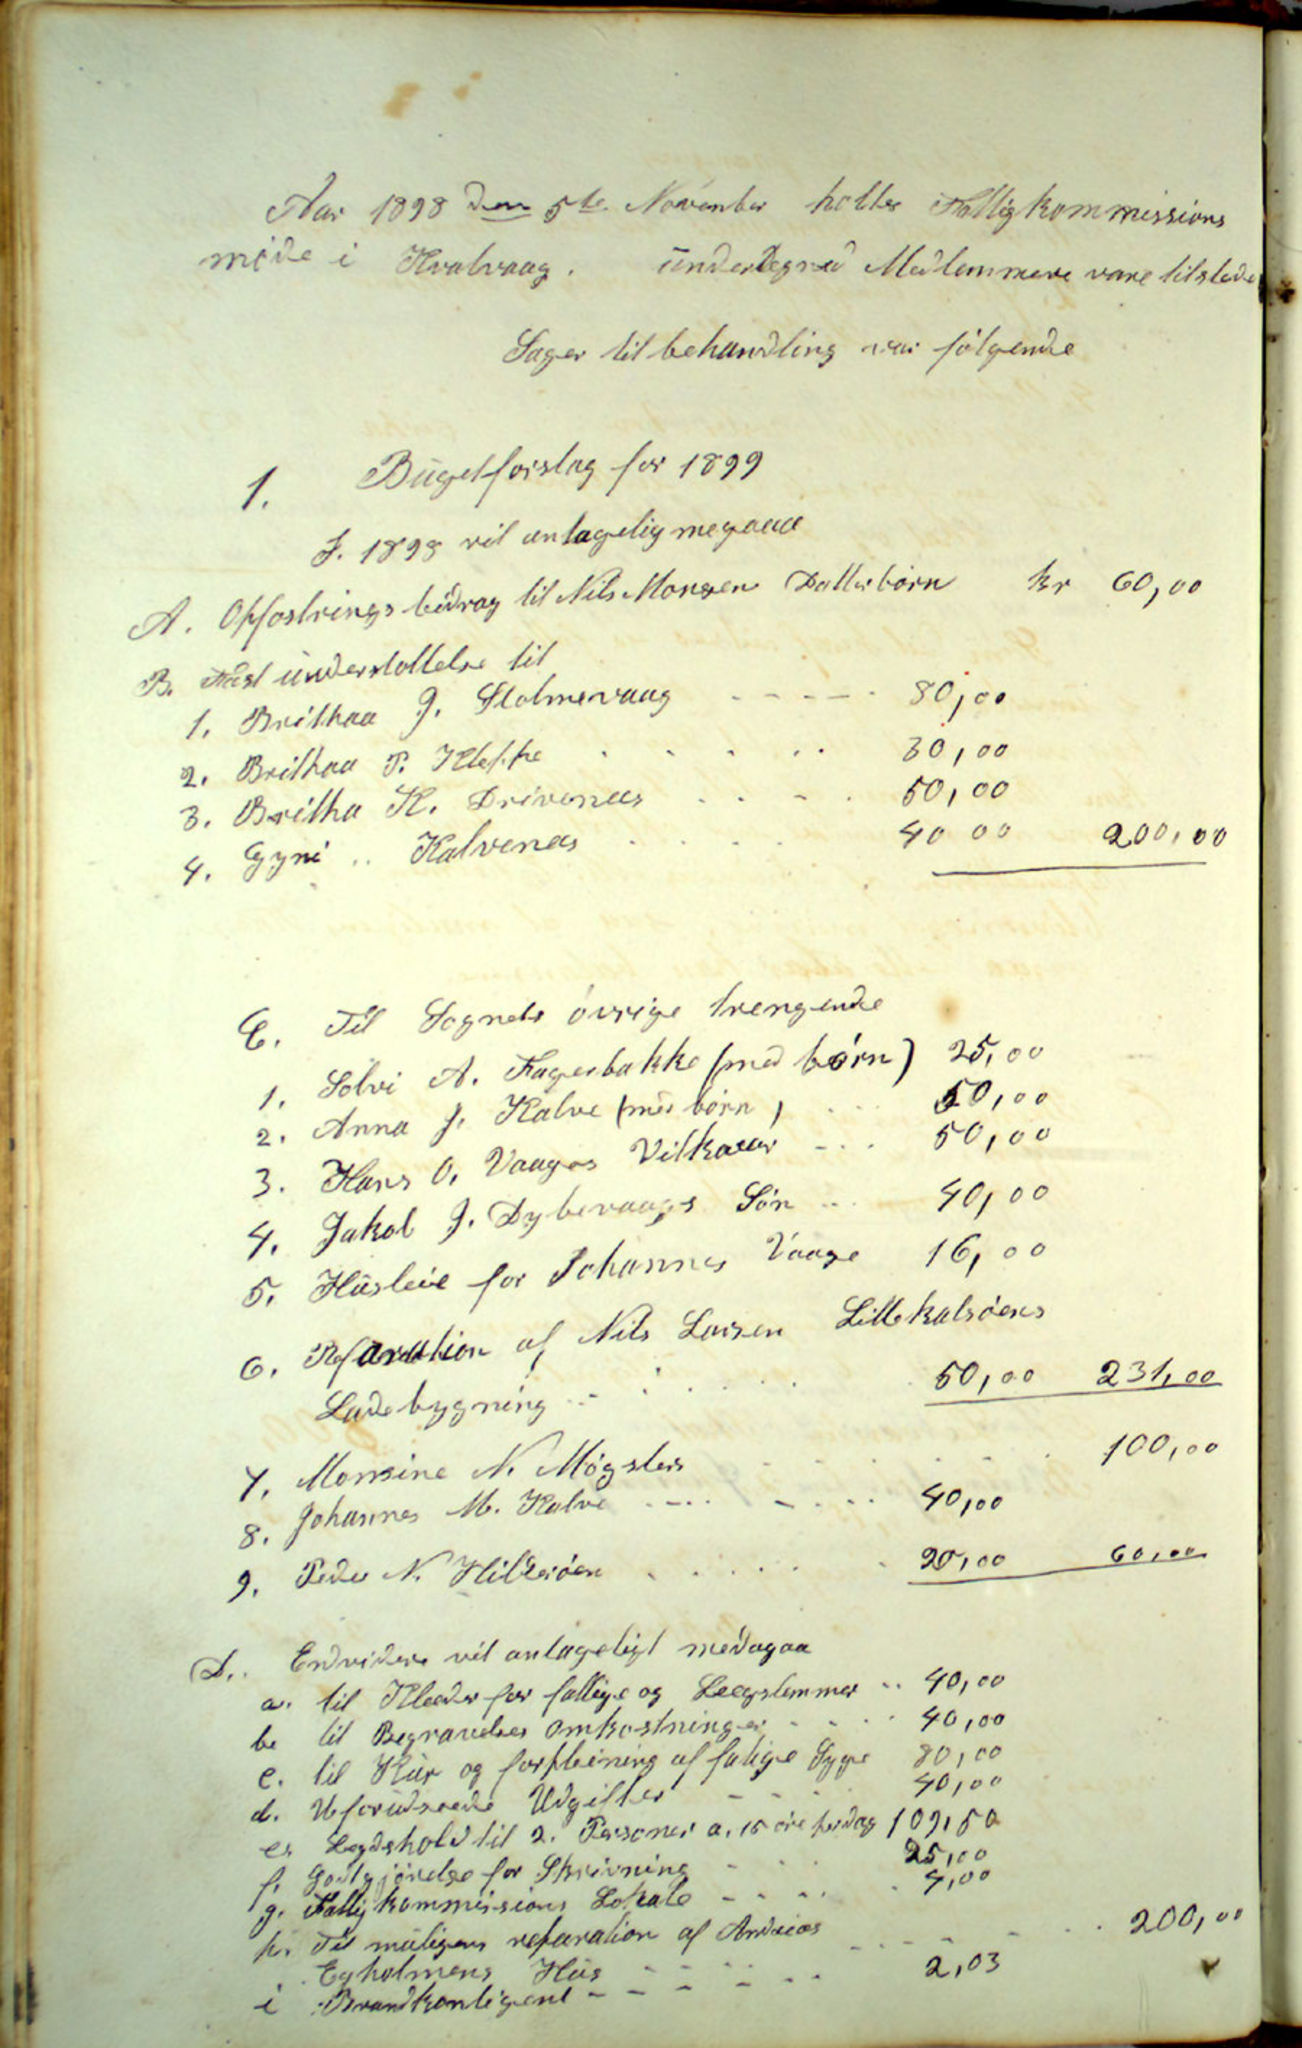 Aar 1898 den 5te November holtes Fattigkommissions
møde i Kvalvaag. undertegned Medlemmere vare tilstede
Sager til behandling var følgende
1. Bugetforslag for 1899
I. 1898 vil antagelig megaaa
A. Opfostringsbidrag til Nils Monsen Datterbørn kr 60,00
B. Fast understøttelse til
1. Brithaa J. Stolmevaag 80,00
2. Brithaa P. Kleppe 30,00
3. Britha K. Drivenæs 50,00
4. Gyri .. Kalvenæs 40 00 200,00
C. Til Sognets øvrige trengende
1. Sølvi A. Fagerbakke (med børn) 25,00
2. Anna J. Kalve (med børn) 50,00
3. Hans O. Vaages Vilkaaar 50,00
4. Jakob J. Dybevaags Søn 40,00
5. Husleie for Johannes Vaage 16,00
6. Reparation af Nils Larsen Lillekalsøens
Ladebygning 50,00 231,00
7. Monsine N. Møgsters 100,00
8. Johannes M. Kalve 40,00
9. Peder N. Hilderøen 20,00 60,00
D. Endvidere vil antageligt medagaa
a. til Klæder for fattige og Lægslemmer 40,00
b. til Begravelses omkostninger 40,00
c. til Kur og forpleining af fatige Syge 80,00
d. Uforudseede Udgifter 40,00
e. Legdshold til 2. Personer a. 15 øre perdag 109,50
f. Godtgjørelse for Skrivning 25,00
g. Fattigkommissions Lokale 4,00
h. Til muligens reparation af Andreas
Egholmens Hus 200,00
i Brandkontigent 2,03